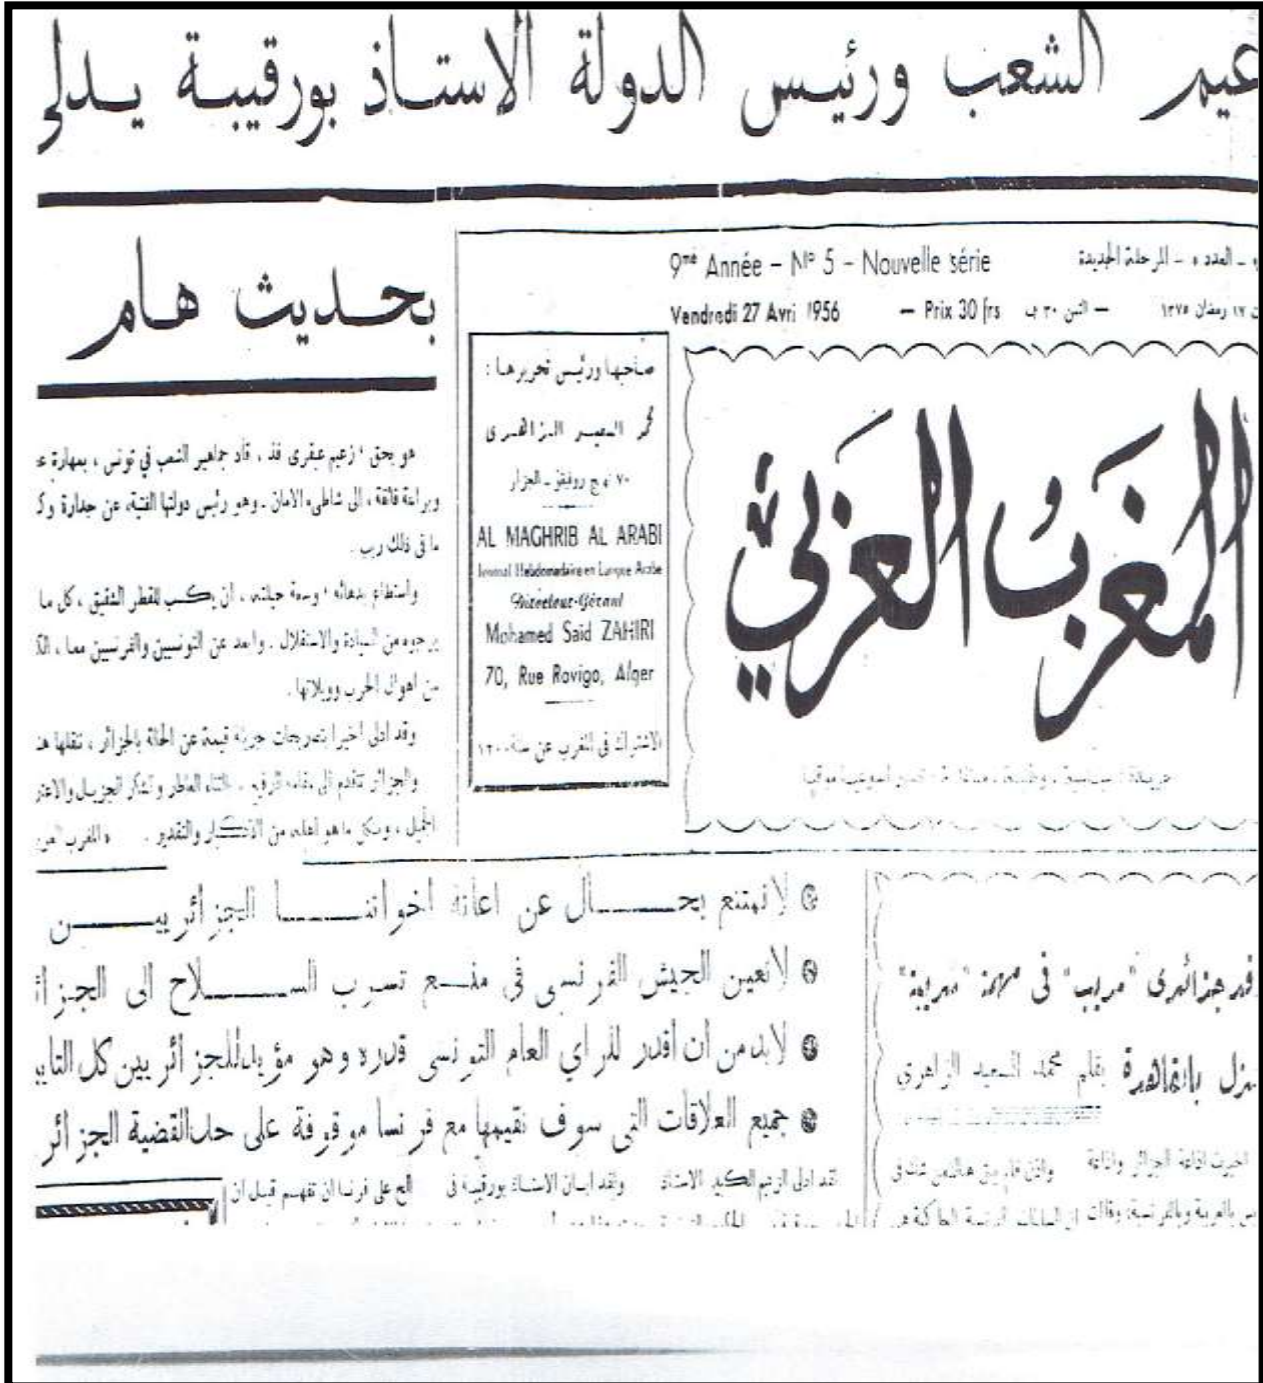 عيم الشعب ورئيس الدولة الاستاذ بورقيبة يدلي
بحديث هام
9me Année - No 5 - Nouvelle série
ـ العدد ٥ ـ المرحلة الجديدة
Vendredi 27 Avri 1956 — Prix 30 frs
— الثمن ٣٠ ف
١٧ رمضان ١٣٧٥
المغرب العربي
صاحبها ورئيس تحريرها :
محمد السعيد الزاهري
٧٠ نهج روفيقو ـ الجزائر
AL MAGHRIB AL ARABI
Journal Hebdomadaire en Langue Arabe
Directeur-Gérant
Mohamed Said ZAHIRI
70, Rue Rovigo, Alger
الاشتراك في المغرب عن سنة ١٢٠٠
هو بحق ؛ زعيم عبقرى فذ ، قاد جماهير الشعب في تونس ، بمهارة
وبراعة فائقة ، الى شاطىء الامان . وهو رئيس دولتها الفتية، عن جدارة
ما فى ذلك ريب .
واستطاع بدهائه ؛ وسعة حيلته ، ان يكسب للقطر الشقيق ، كل ما
يرجوه من السيادة والاستقلال . وابعد عن التونسيين والفرنسيين معا ،
من اهوال الحرب وويلاتها .
وقد ادلى اخيرا بتصريحات جريئة قيمة عن الحالة بالجزائر ، ننقلها
والجزائر تتقدم الى مقامه الرفيع ، بالثناء العاطر والشكر الجزيل
الجميل ، وبكل ما هو اهله من الاكبار والتقدير .
لا نمتنع بحال عن اعانة اخواننا الجزائريين
لا نعين الجيش الفرنسى فى منع تسرب السلاح الى
لابد من أن أقدر للرأي العام التونسى قدره وهو مؤيد للجزائريين كل
جميع العلاقات التى سوف نقيمها مع فرنسا موقوفة على حل القضية
جزائرى "مريب" فى مهمة "مريبة"
بالقاهرة بقلم محمد السعيد الزاهري
لقد ادلى الزعيم الكبير الاستاذ
ولقد ابان الاستاذ بورقيبة فى
الح على فرنسا ان تفهم قبل ان
اذاعة الجزائر واذاعة
بالعربية وبالفرنسية؛ وقالت